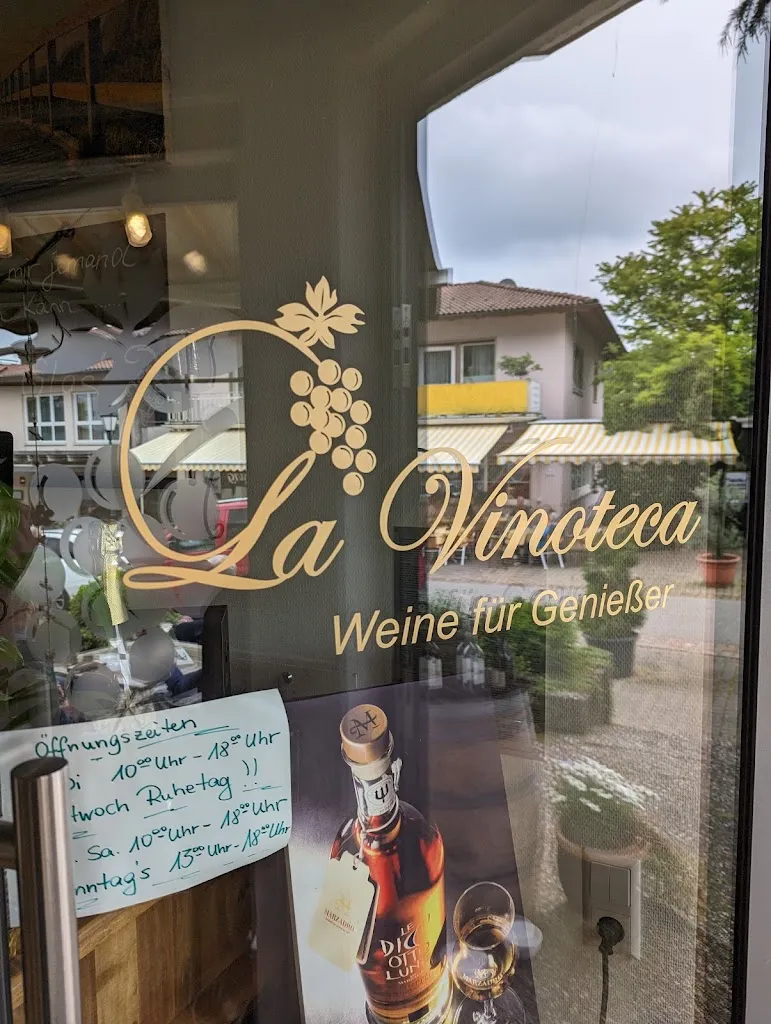 mir jemand
kann
La Vinoteca
Weine für Genießer
Öffnungszeiten
Di 10⁰⁰ Uhr - 18⁰⁰ Uhr
twoch Ruhetag !!
Sa. 10⁰⁰ Uhr - 18⁰⁰ Uhr
nntag's 13⁰⁰ Uhr - 18⁰⁰ Uhr
M
MARZADRO
LE
DICI
OTTO
LUNE
MARZADRO